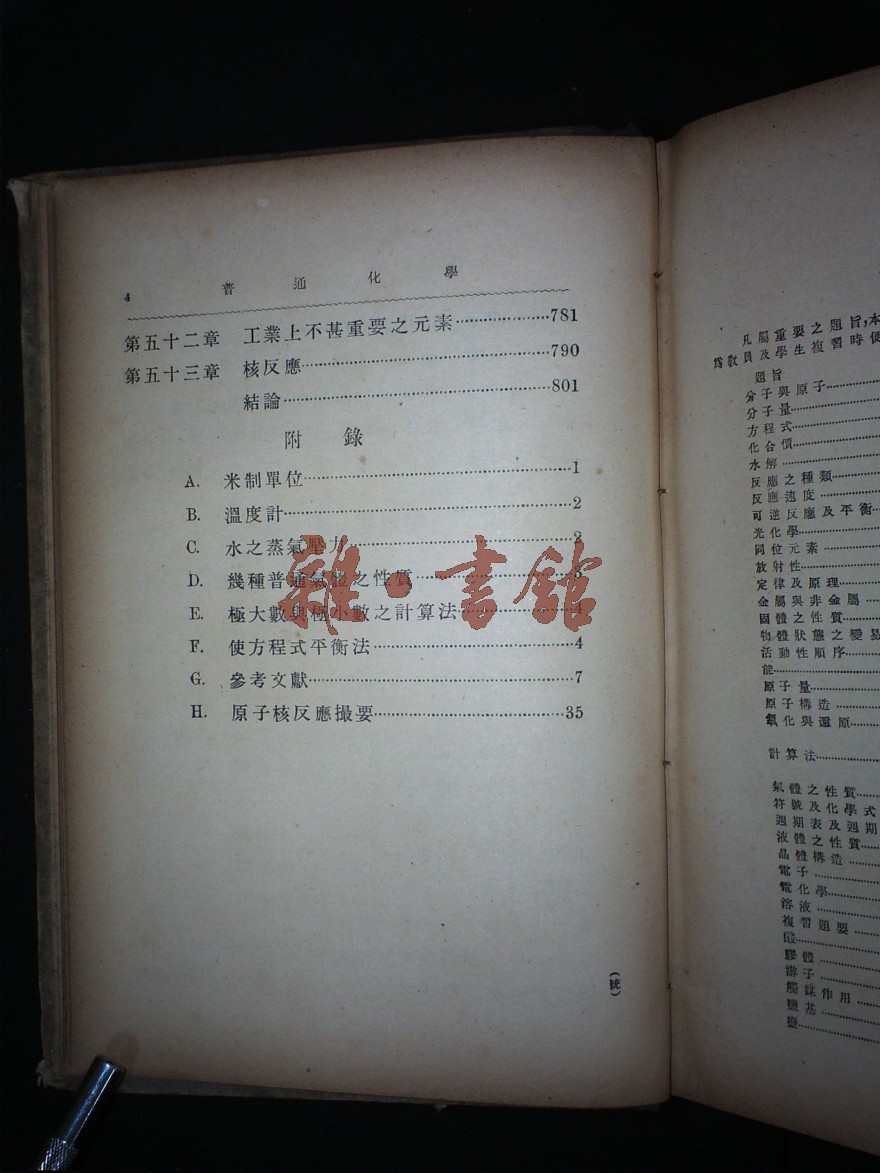 4 普通化學
第五十二章 工業上不甚重要之元素………………781
第五十三章 核反應………………790
結論………………801
附錄
A. 米制單位………………1
B. 溫度計………………2
C. 水之蒸氣壓力………………2
D. 幾種普通氣體之性質………………3
E. 極大數與極小數之計算法………………4
F. 使方程式平衡法………………4
G. 參考文獻………………7
H. 原子核反應撮要………………35
(統)
雜·書館
凡屬重要之題旨,本
爲敎員及學生複習時便
題旨
分子與原子………
分子量………
方程式………
化合價………
水解………
反應之種類………
反應速度………
可逆反應及平衡………
光化學………
同位元素………
放射性………
定律及原理………
金屬與非金屬………
固體之性質………
物體狀態之變易
活動性順序………
能………
原子量………
原子構造………
氧化與還原………
計算法………
氣體之性質………
符號及化學式
週期表及週期
液體之性質………
晶體構造………
電子………
電化學………
溶液………
複習題要………
酸………
膠體………
游子………
觸媒作用………
鹽基………
鹽………